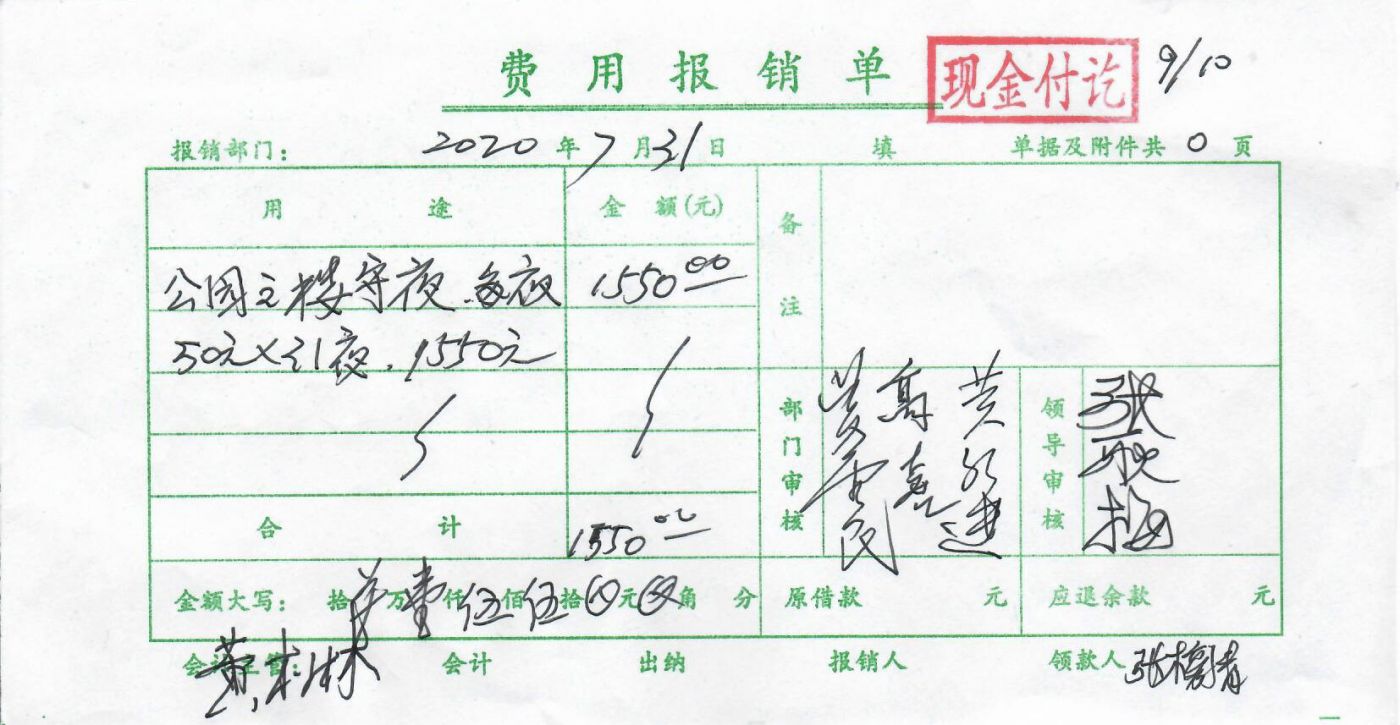 费用报销单 现金付讫 9/10
报销部门： 2020年7月31日 填 单据及附件共0页
用途 金额(元) 备注
公园主楼守夜.每夜 1550.00
50元×31夜.1550元
部门审核 领导审核
合计 1550.00
金额大写： 拾万壹仟伍佰伍拾元角分 原借款 元 应退余款 元
会计主管： 会计 出纳 报销人 领款人